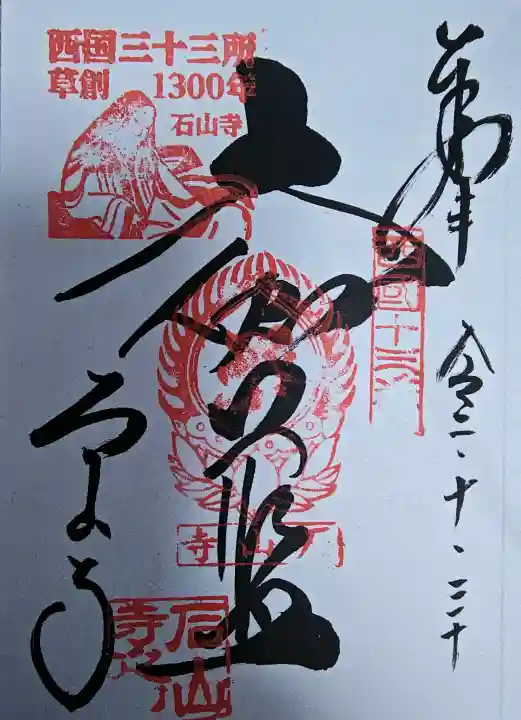 奉拝
令二・十・二十
西国十三
大伽藍
石山寺
西国三十三所
草創 1300年
石山寺
石山寺